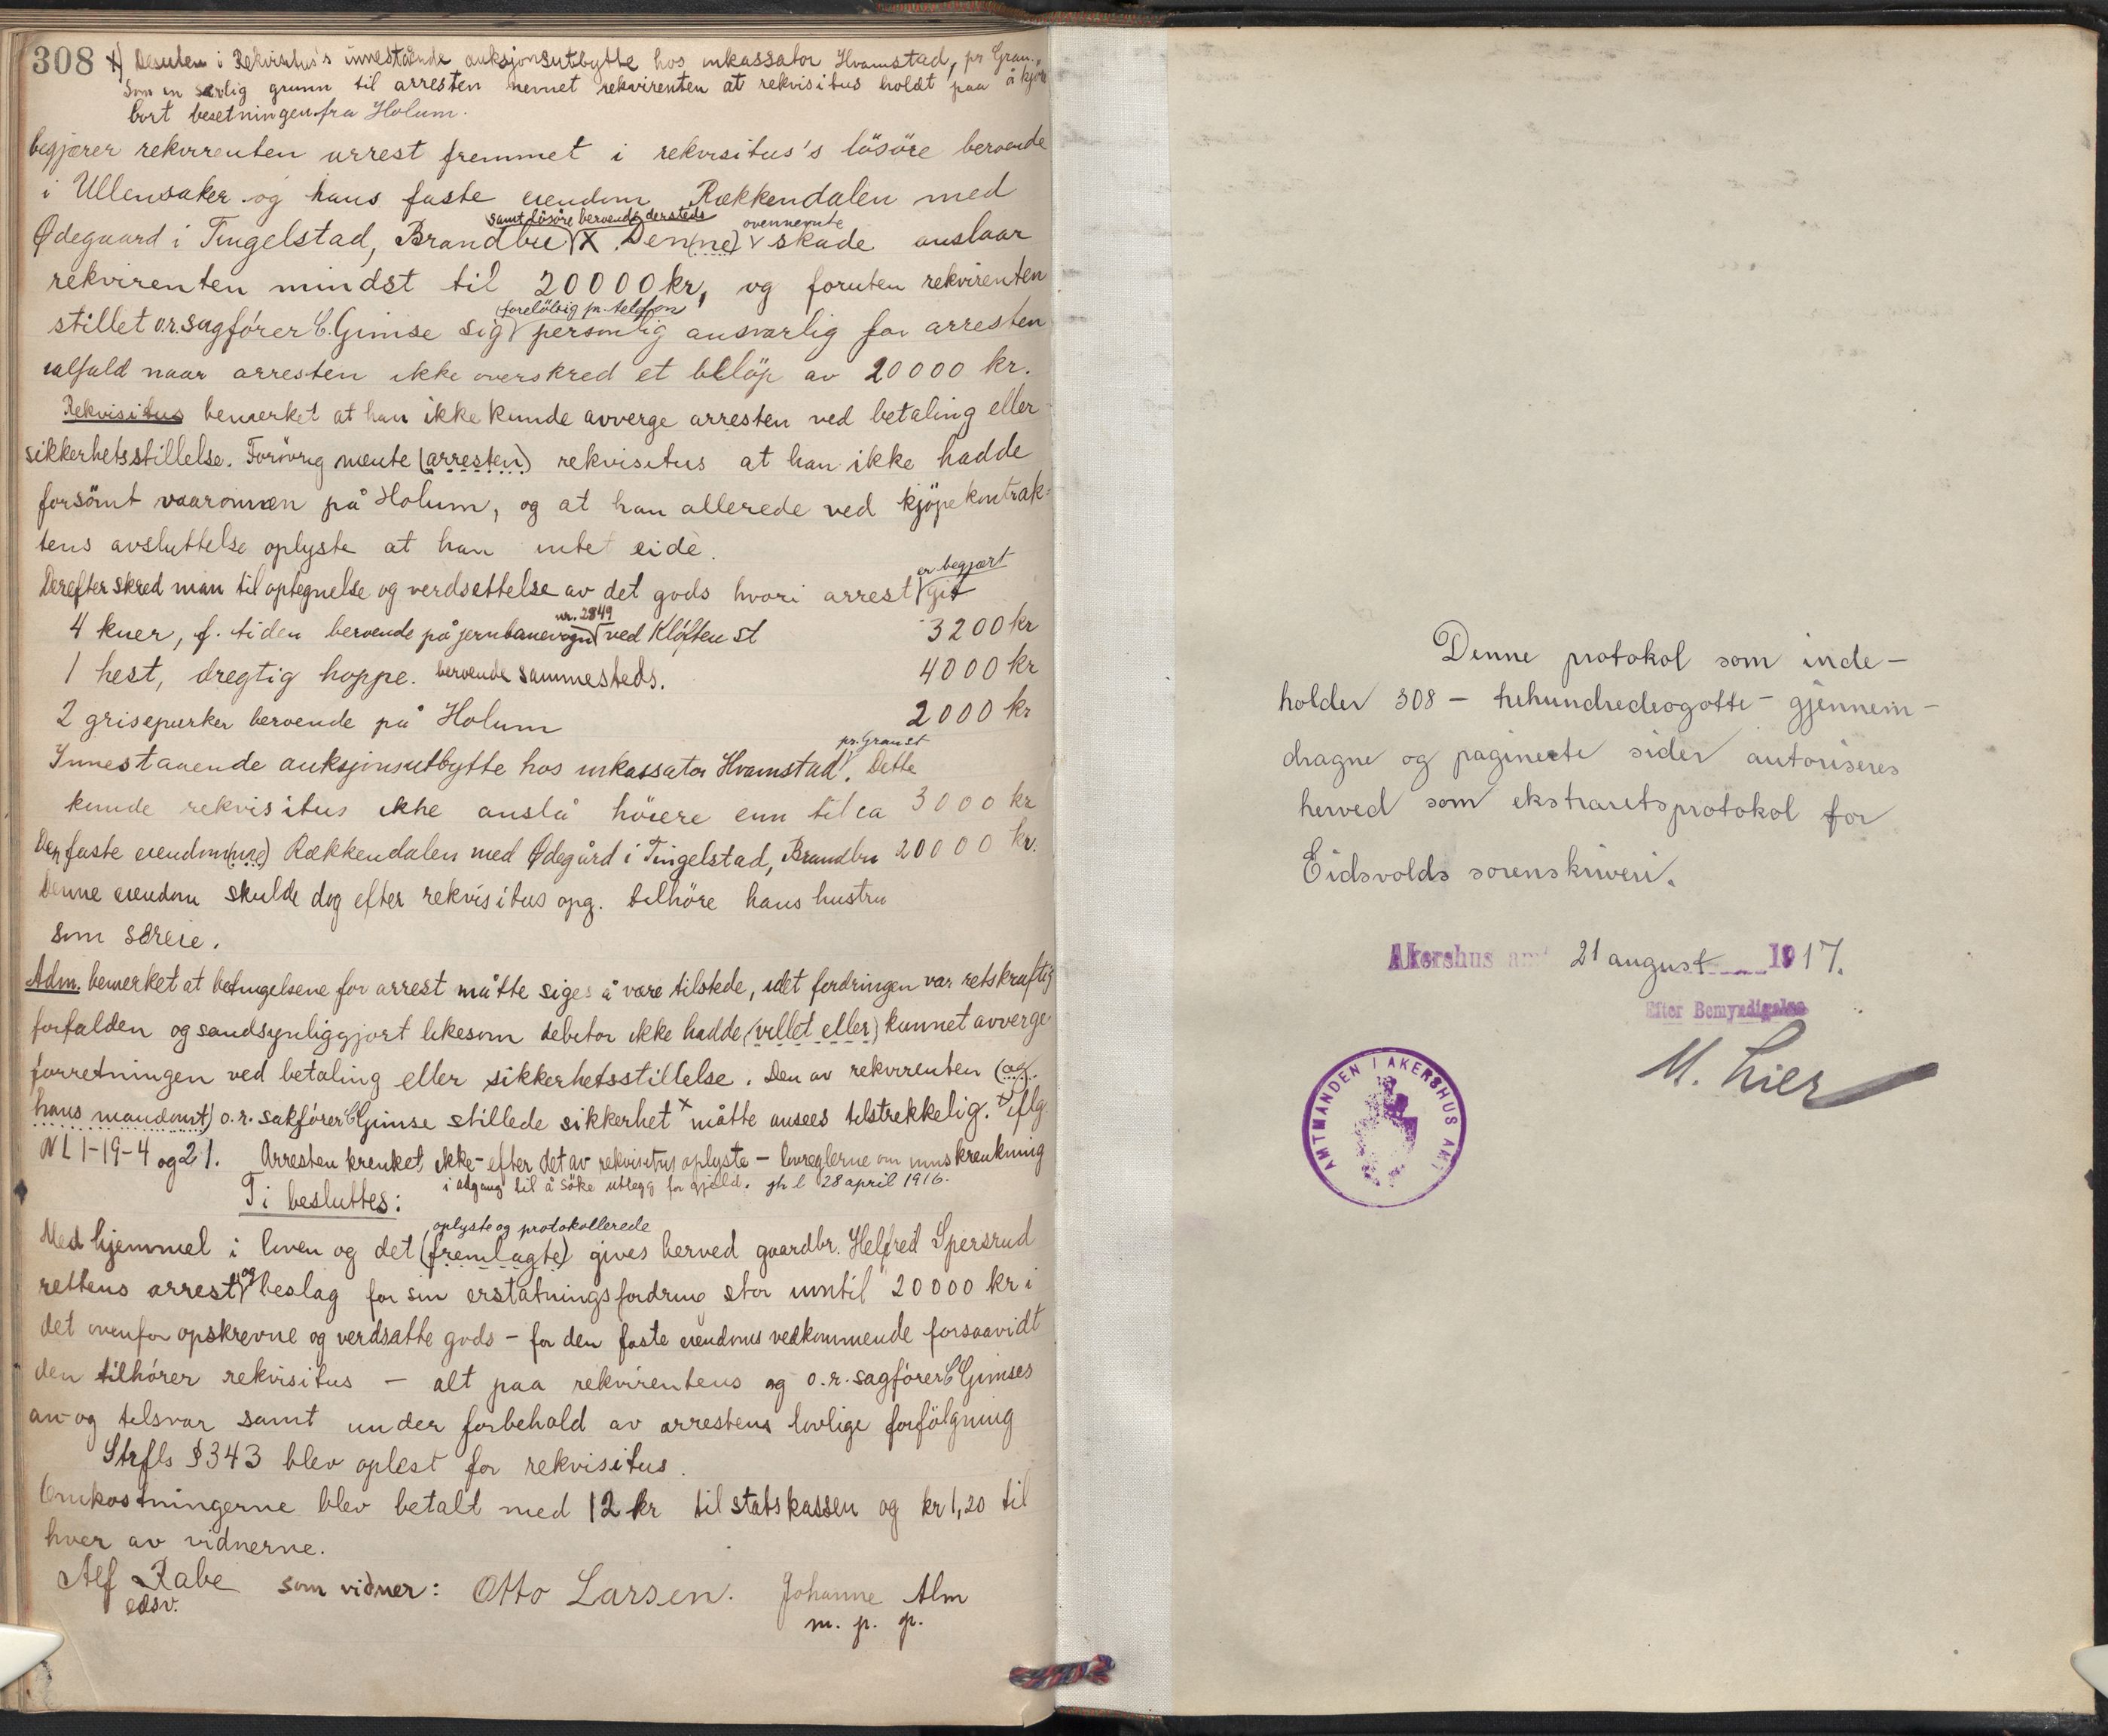 308 x) Desuten i Rekvisitus's innestående auksjonsutbytte hos inkassator Hvamstad, pr Gran.,
Som en særlig grunn til arresten nevnet rekvirenten at rekvisitus holdt paa å kjøre
bort besetningen fra Holum.
begjærer rekvirenten arrest fremmet i rekvisitus's lösöre beroende
i Ullensaker og hans faste eiendom Rækkendalen med
samt lösöre beroende dersteds ovennevnte
Ødegaard i Tingelstad, Brandbu X. Den(ne) skade anslaar
rekvirenten mindst til 20000 kr, og foruten rekvirenten
forelöbig pr. telefon
stillet o.r.sagfører C. Gimse sig personlig ansvarlig for arresten
ialfald naar arresten ikke overskred et belöp av 20000 kr.
Rekvisitus bemerket at han ikke kunde avverge arresten ved betaling eller
sikkerhetsstillelse. Forövrig mente (arresten) rekvisitus at han ikke hadde
forsömt vaaronnen på Holum, og at han allerede ved kjöpekontrak-
tens avsluttelse oplyste at han intet eide.
er begjært
Derefter skred man til optegnelse og verdsettelse av det gods hvori arrest git
nr. 2849
4 kuer, f. tiden beroende på jernbanevogn ved Kløften st 3200 kr
1 hest, dregtig hoppe. beroende sammesteds. 4000 kr
2 grisepurker beroende på Holum 2000 kr
pr. Gran st
Innestaaende auksjonsutbytte hos inkassator Hvamstad. Dette
kunde rekvisitus ikke anslå höiere enn til ca 3000 kr
Den faste eiendom(me) Rækkendalen med Ødegård i Tingelstad, Brandbu 20000 kr.
Denne eiendom skulde dog efter rekvisitus opg. tilhöre hans hustru
som særeie.
Adm. bemerket at betingelsene for arrest måtte siges å være tilstede, idet fordringen var retskraftig
forfalden og sandsynliggjort likesom debitor ikke hadde (villet eller) kunnet avverge
forretningen ved betaling eller sikkerhetsstillelse. Den av rekvirenten (og
hans mandant) o.r. sakfører C Gimse stillede sikkerhet x måtte ansees tilstrekkelig. x) iflg.
NL 1-19-4 og 21. Arresten krenket ikke - efter det av rekvisitus oplyste - lovreglerne om innskrenkning
i adgang til å söke utlegg for gjeld. jh l 28 april 1916.
Ti besluttes:
oplyste og protokollerede
Med hjemmel i loven og det (fremlagte) gives herved gaardbr. Helfred Spersrud
og
rettens arrest beslag for sin erstatningsfordring stor inntil 20000 kr i
det ovenfor opskrevne og verdsatte gods - for den faste eiendoms vedkommende forsaavidt
den tilhører rekvisitus - alt paa rekvirentens og o.r. sagfører C Gimses
an- og tilsvar samt under forbehold av arrestens lovlige forfölgning
Strfls § 343 blev oplest for rekvisitus.
Omkostningerne blev betalt med 12 kr til statskassen og kr 1,20 til
hver av vidnerne.
Alf Rabe som vidner: Otto Larsen. Johanne Alm
edsv. m. p. p.
Denne protokol som inde-
holder 308 - trehundredeogotte - gjennem-
dragne og paginerte sider autoriseres
herved som ekstraretsprotokol for
Eidsvolds sorenskriveri.
Akershus amt 21 august 1917.
Efter Bemyndigelse
M. Lier
AMTMANDEN I AKERSHUS AMT